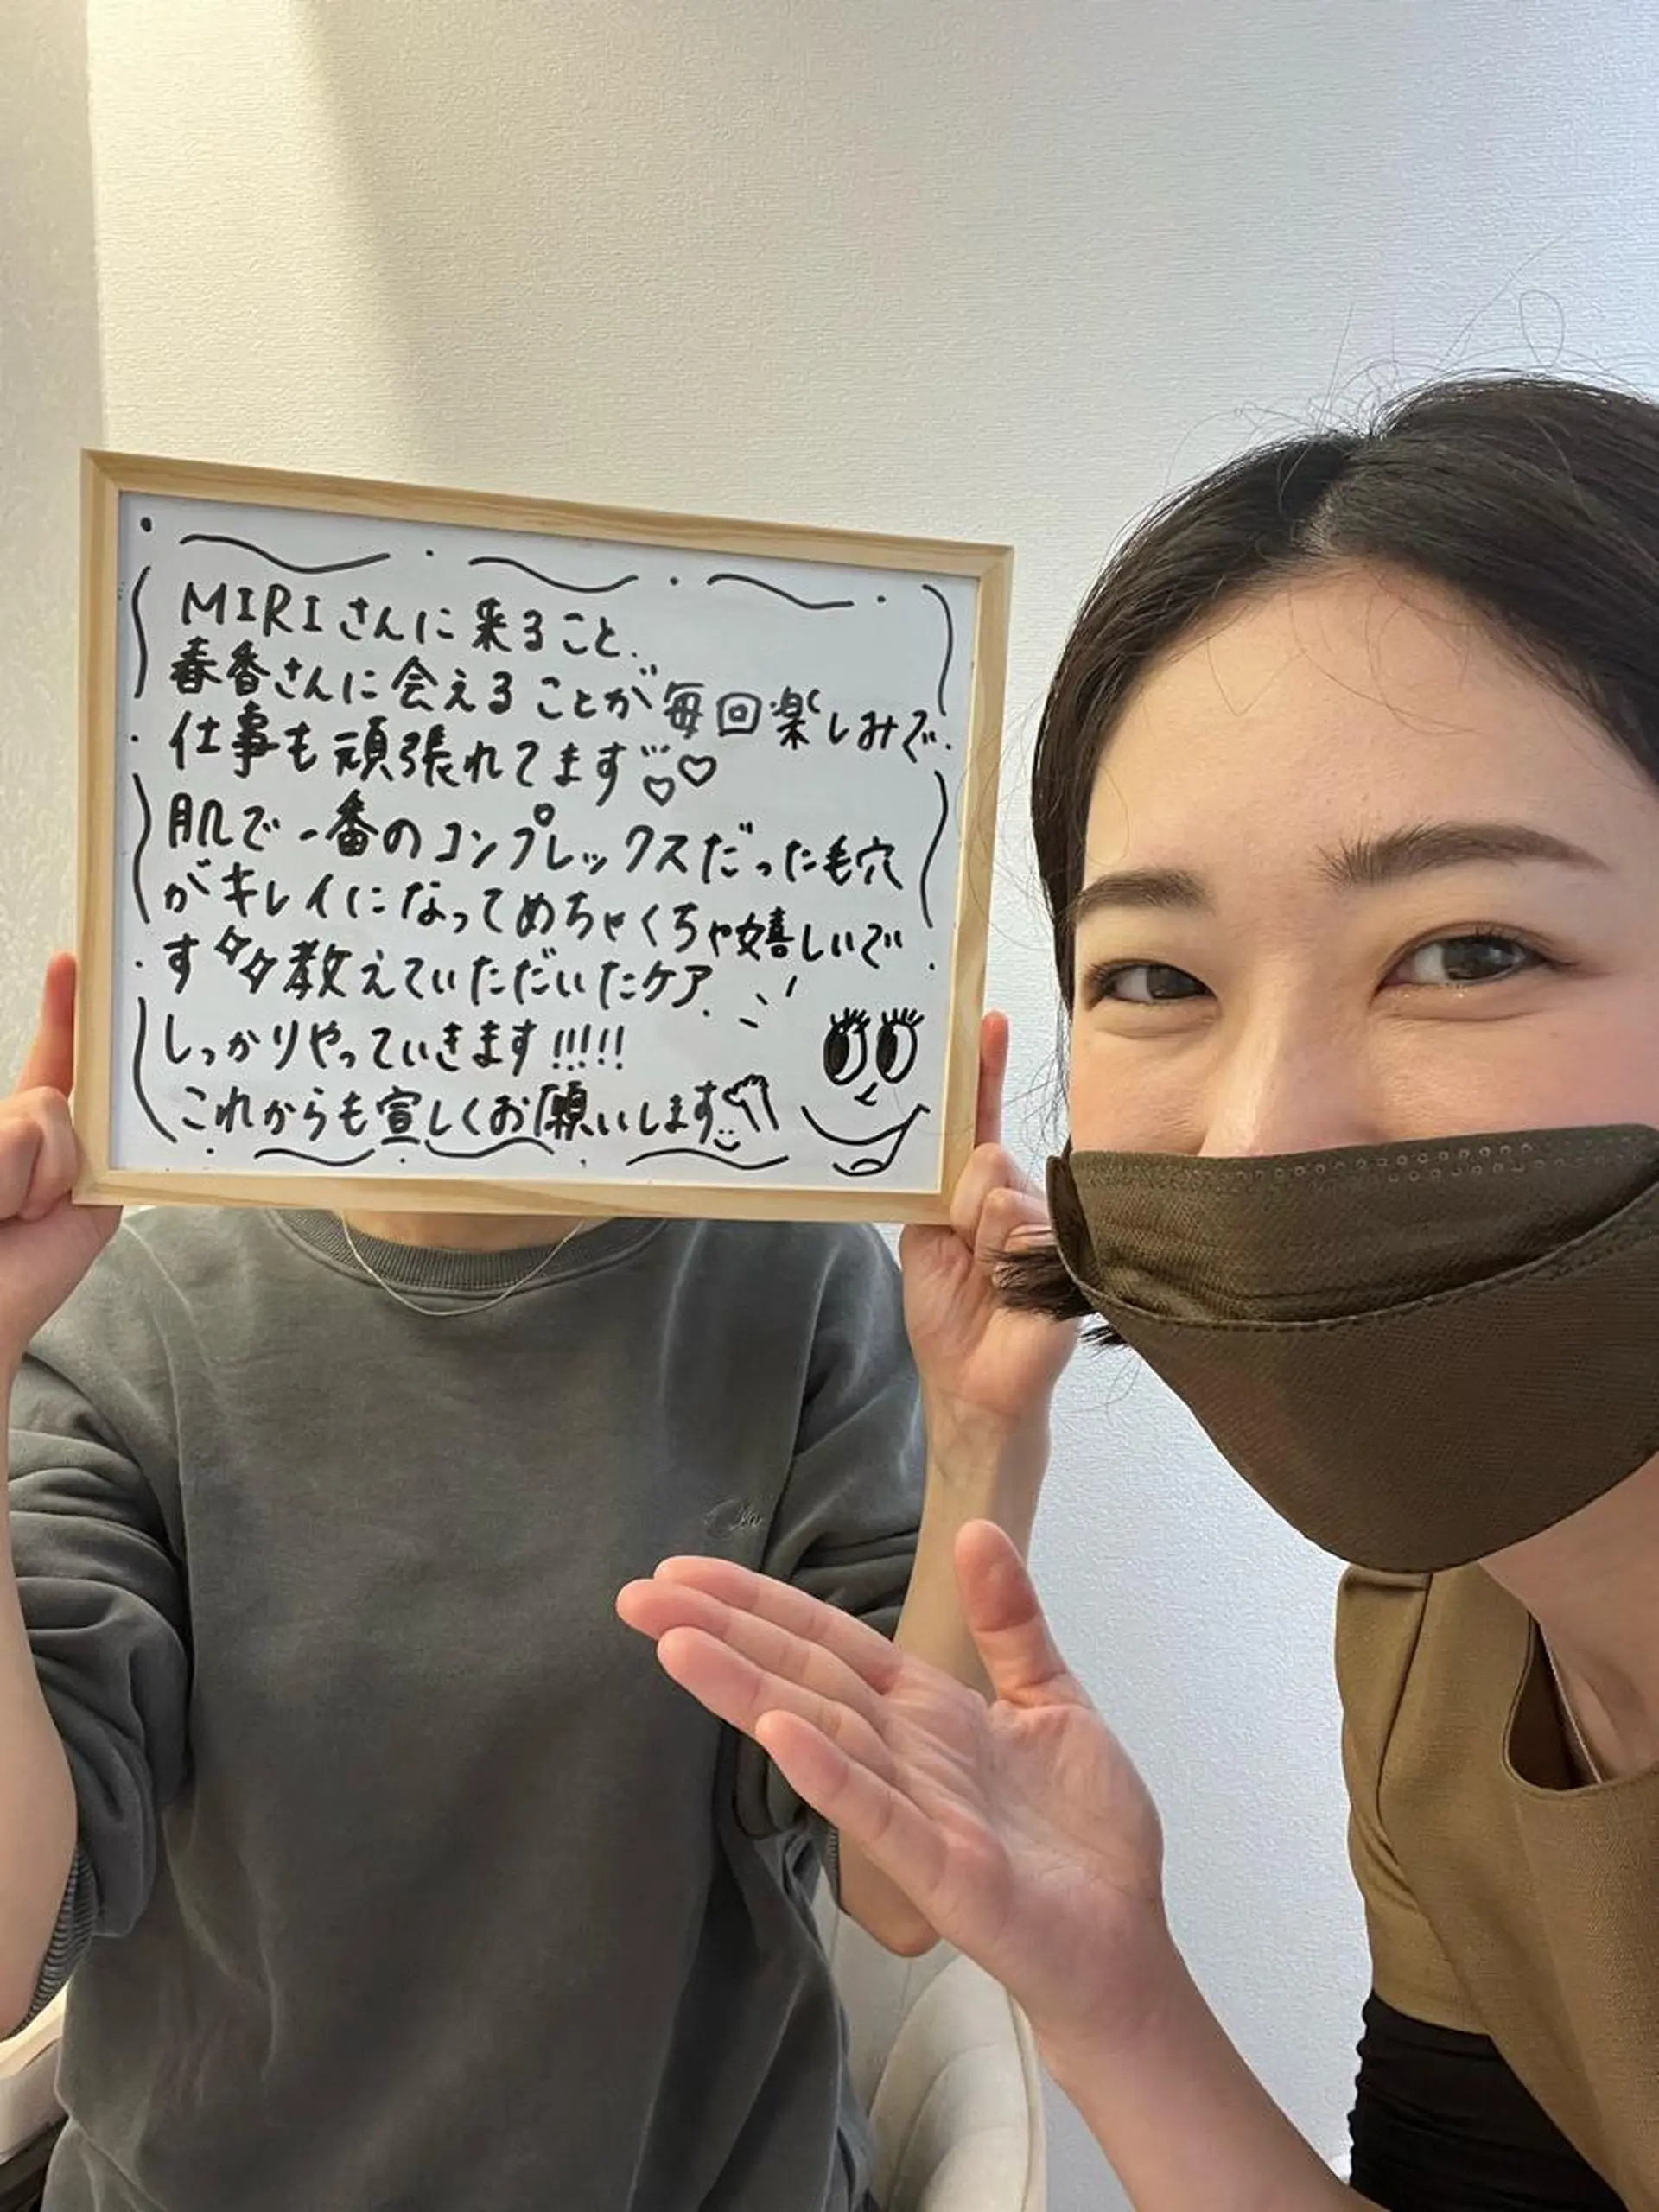 MIRIさんに来ること、
春香さんに会えることが毎回楽しみで、
仕事も頑張れてます♡♡
肌で一番のコンプレックスだった毛穴
がキレイになってめちゃくちゃ嬉しいで
す 教えていただいたケア、
しっかりやっていきます!!!!!
これからも宜しくお願いします